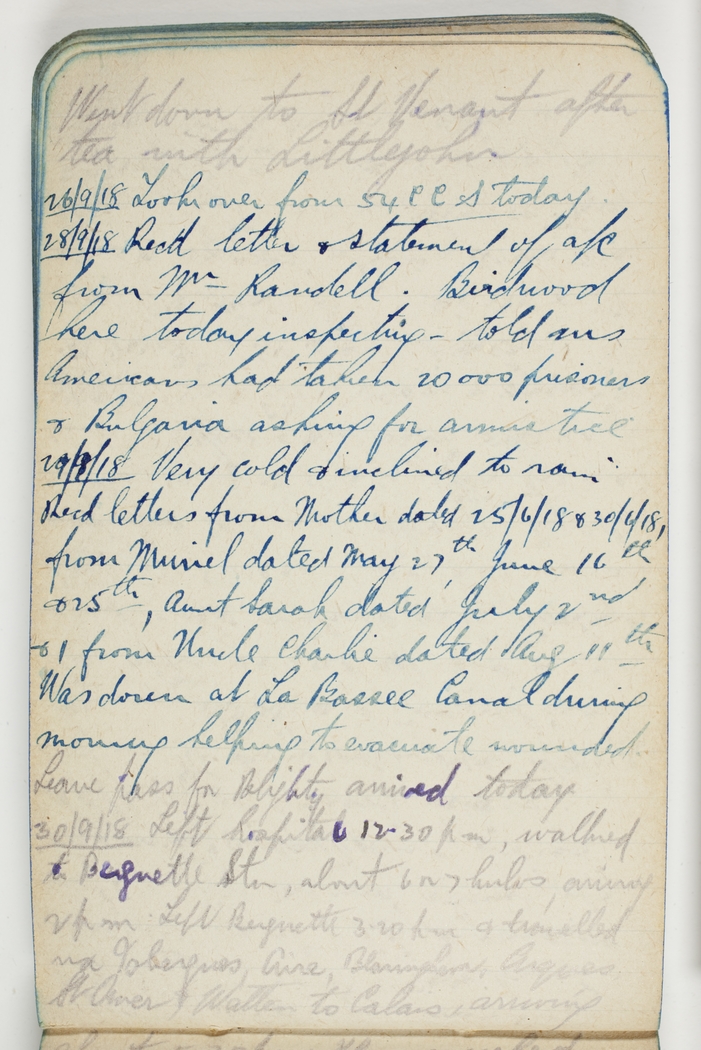 Went down to St Venant after
tea with Littlejohn.
26/9/18 Took over from 54 CCS today.
28/9/18 Recd letter & statement of a/c
from Mr Randell. Birdwood
here today inspecting - told us
Americans had taken 20 000 prisoners
& Bulgaria asking for armistice
29/9/18 Very cold & inclined to rain
Recd letters from Mother dated 25/6/18 & 30/6/18,
from Muriel dated May 27th, June 16th
& 25th, Aunt Sarah dated July 2nd
& 1 from Uncle Charlie dated Aug 11th
Was down at La Bassee Canal during
morning helping to evacuate wounded.
Leave pass for Blighty arrived today
30/9/18 Left hospital 12-30 pm, walked
to Berguette Stn, about 6 or 7 kilos, arriving
2 pm. Left Berguette 3-20 pm & travelled
via Isbergues, Aire, Arques,
St Omer, Watten to Calais, arriving